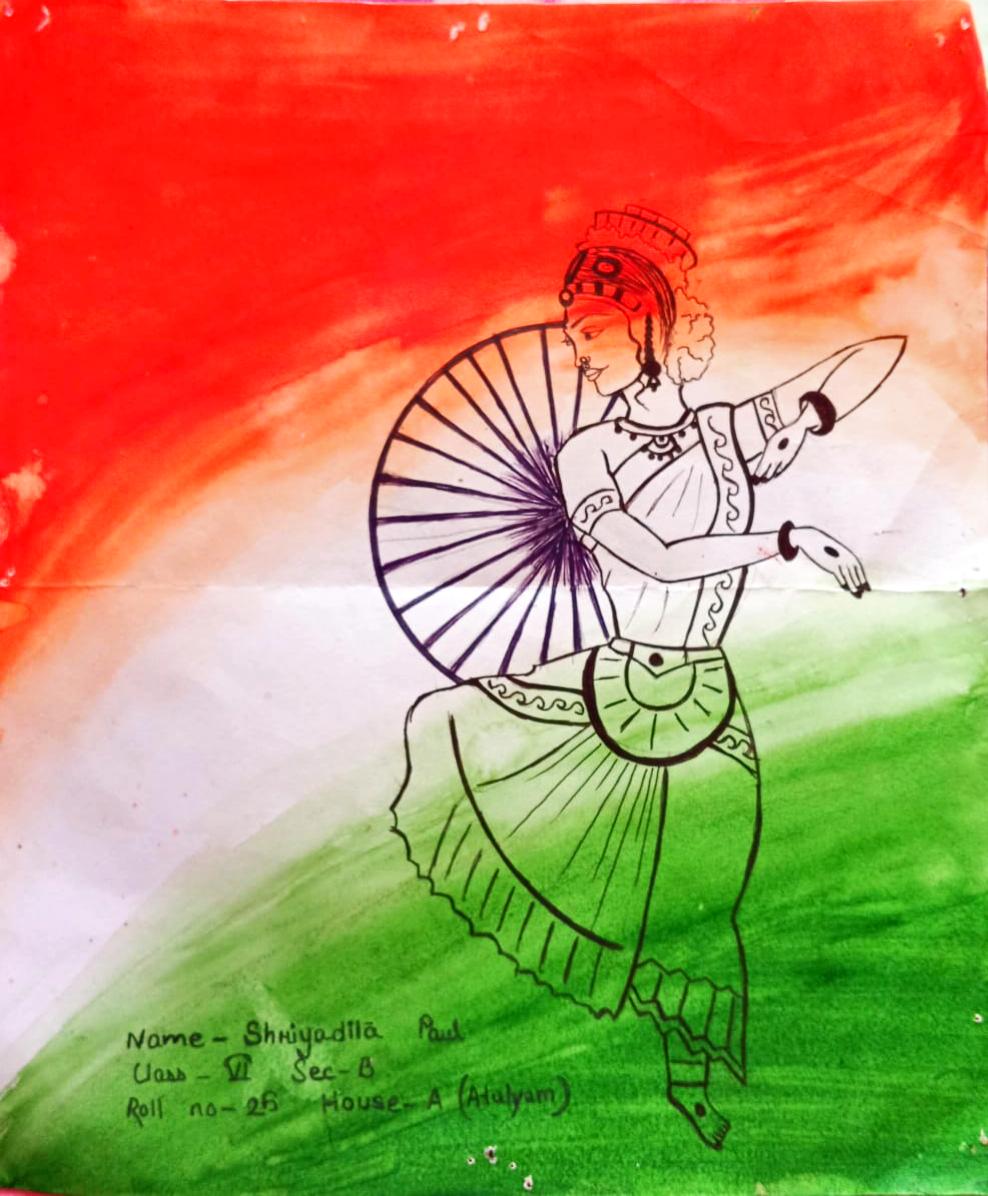 Name - Shriyadita Paul
Class - VI Sec - B
Roll no - 26 House - A (Atulyam)